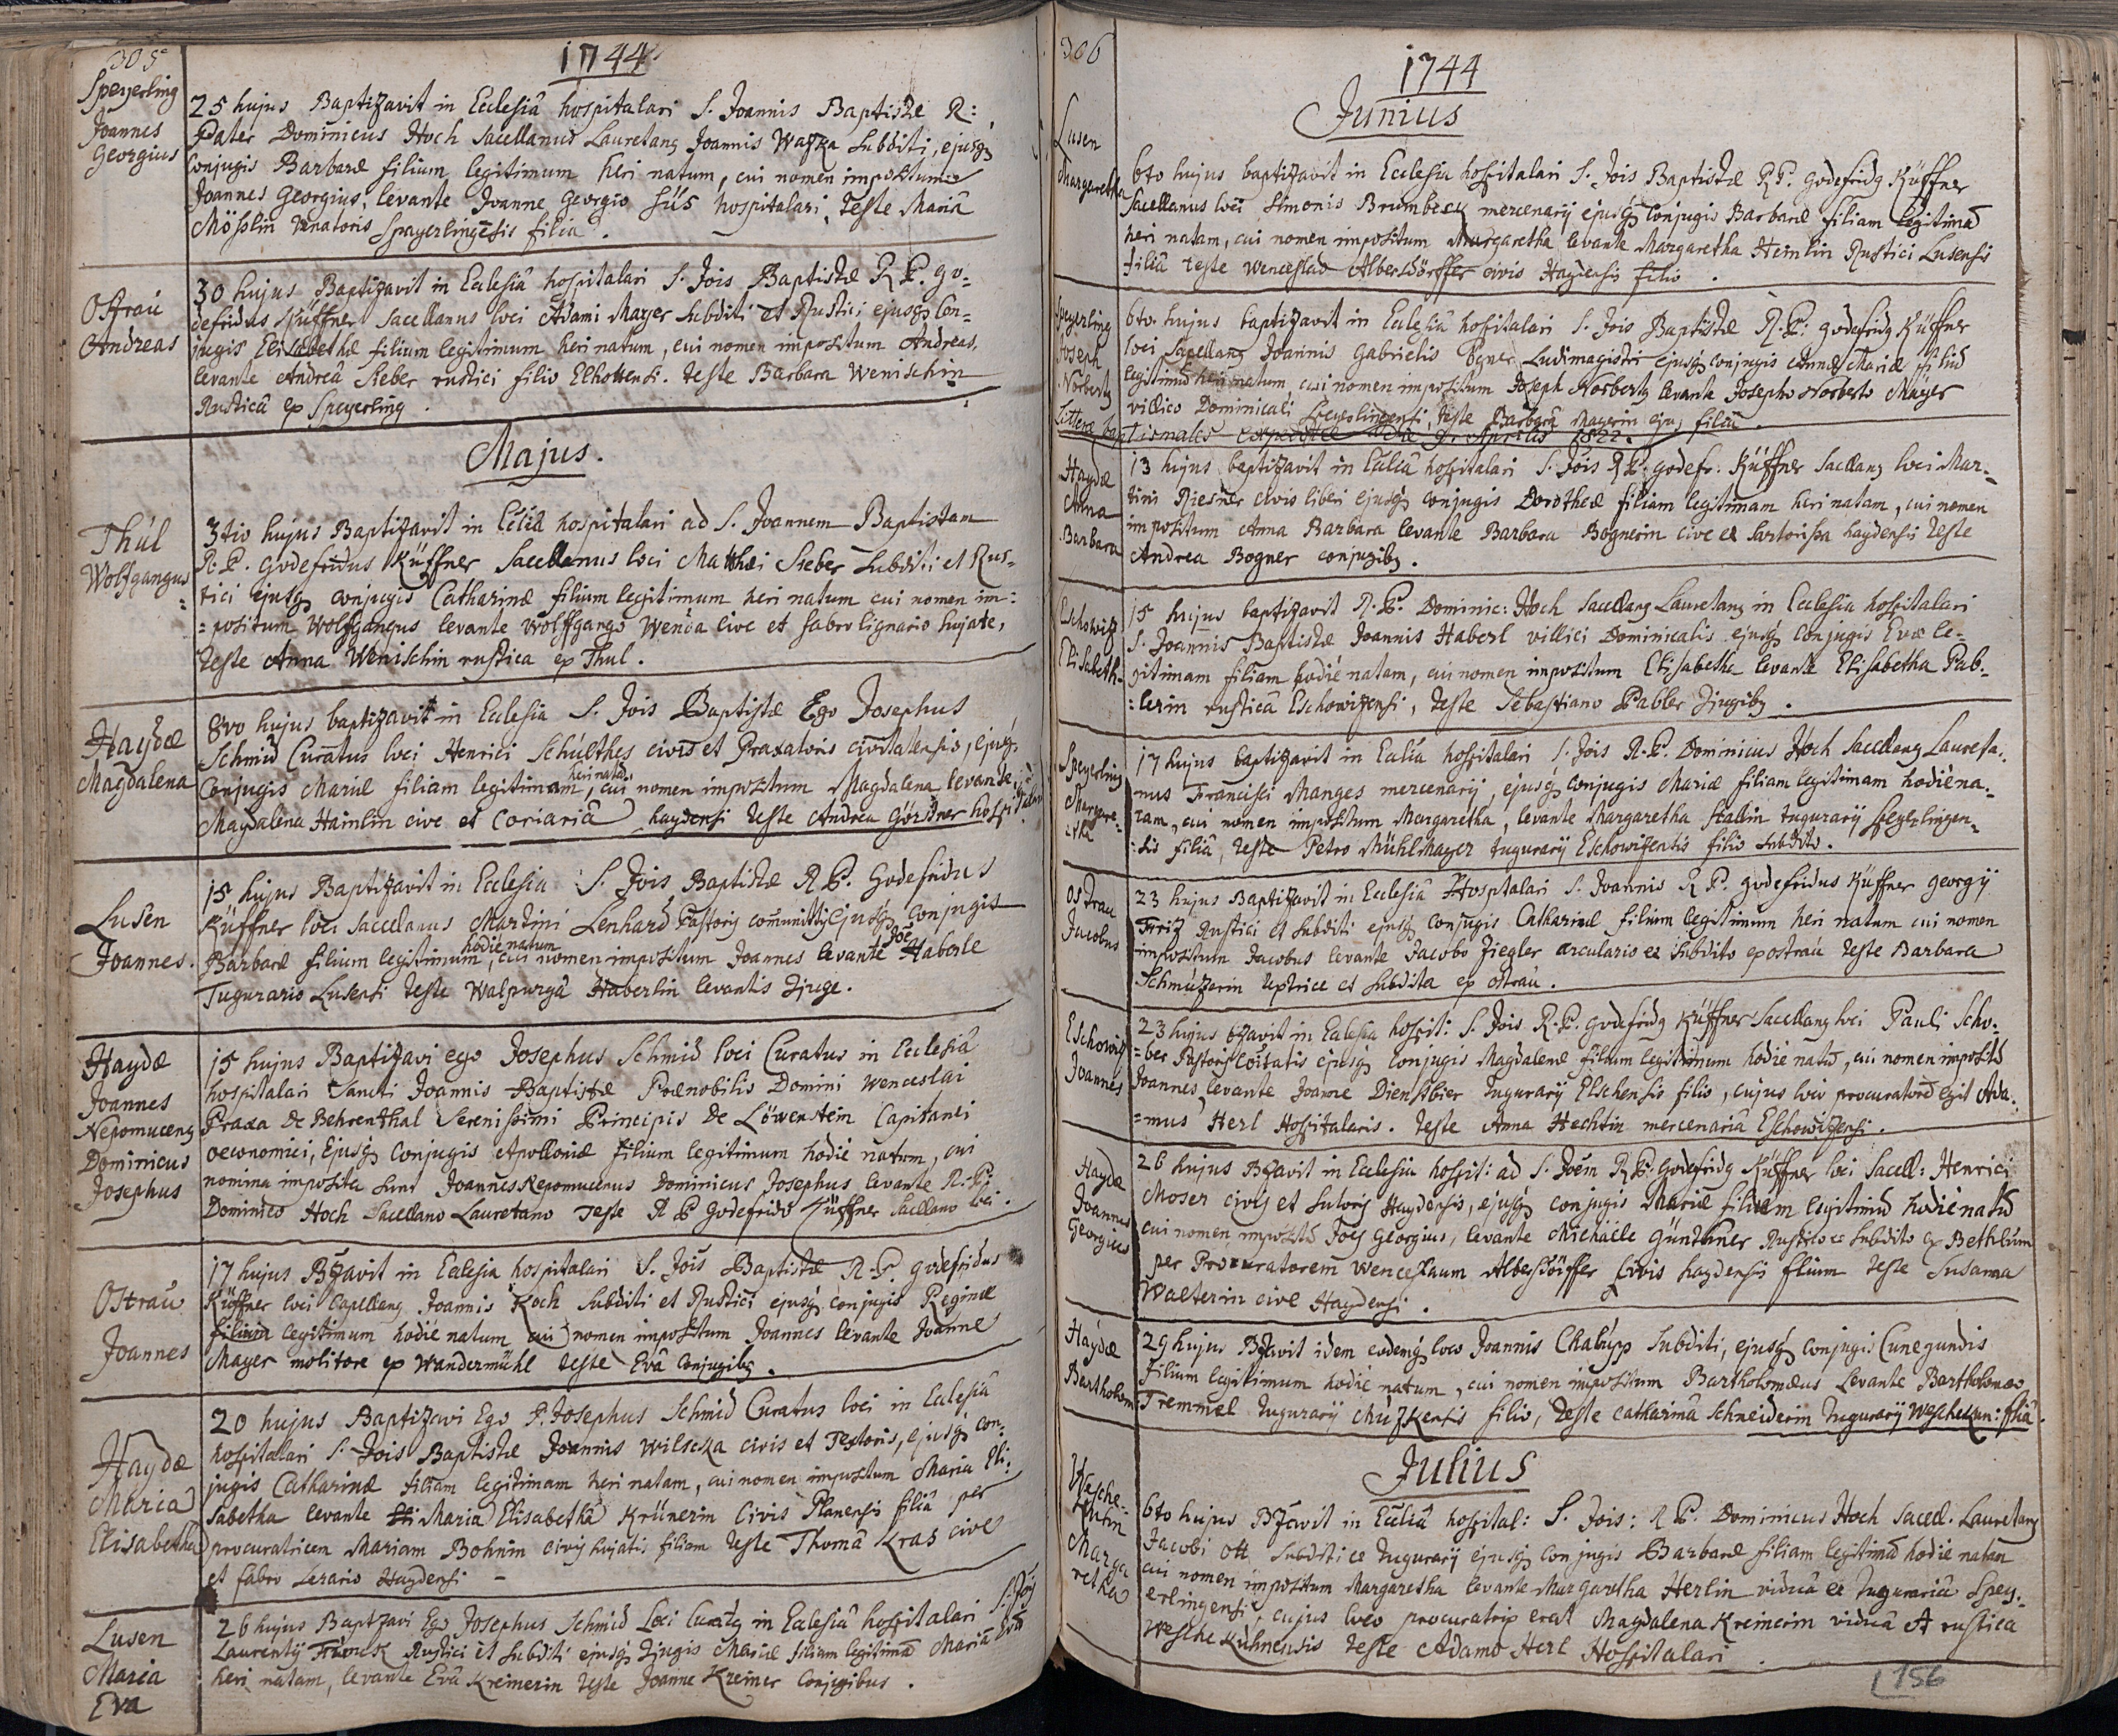 305
1744
Speyerling
Joannes
Georgius
25 hujus Baptizavit in Ecclesiâ hospitalari S. Joannis Baptistæ R:
Pater Dominicus Hoch Sacellanus Lauretanq Joannis Waska Subditi, ejusq
Conjugis Barbaræ filium legitimum heri natum, cui nomen impositum
Joannes Georgius, levante Joanne Georgio hospitalari, teste Mariâ
Mösslin Venatoris Speyerlingensis filiâ.
Ostrau
Andreas
30 hujus Baptizavit in Ecclesiâ hospitalari S. Jois Baptistæ R P. Go-
defridus Küffner Sacellanus loci Adami Mayer Subditi et Rustici ejusq Con-
jugis Elisabethæ filium legitimum heri natum, cui nomen impositum Andreas,
levante Andreâ Sieber rustici filio Elhottensi. teste Barbara Wenischin
Rusticâ ex Speyerling.
Majus.
Thúl
Wolfgangus
3tio hujus Baptizavit in Ecclia hospitalari ad S. Joannem Baptistam
R. P. Godefridus Küffner Sacellanus loci Matthæi Sieber Subditi et Rus-
tici ejusq conjugis Catharinæ filium legitimum heri natum cui nomen im:
=positum Wolffgangus levante Wolffgango Wenda cive et fabro lignario hujate,
teste Anna Wenischin rustica ex Thul.
Haydæ
Magdalena
8vo hujus baptizavit in Ecclesia S. Jois Baptistæ Ego Josephus
Schmid Curatus loci Henrici Schúlthes civis et Praxatoris civitatensis, ejusq
Conjugis Mariæ filiam legitimam, heri natam cui nomen impositum Magdalena levante
Magdalena Hainlin cive et Coriariâ haydensi teste Andrea Görstner hospitalari
Lusen
Joannes.
15 hujus Baptizavit in Ecclesia S. Jois Baptistæ R P. Godefridus
Küffner loci Sacellanus Martini Lenhard Pastoris ejusq conjugis
Barbaræ filium legitimum, hodie natum cui nomen impositum Joannes levante Joe Haberle
Tugurario Lusensi teste Walpurgâ Haberlin levantis Zjuge.
Haydæ
Joannes
Nepomucenq
Dominicus
Josephus
15 hujus Baptizavi ego Josephus Schmid loci Curatus in Ecclesiâ
hospitalari Sancti Joannis Baptistæ Prænobilis Domini Wenceslai
Praxa De Behrenthal Serenissimi Principis De Löwenstein Capitanei
oeconomici, Ejusq Conjugis Apolloniæ filium legitimum hodie natum, cui
nomina imposita sunt Joannes Nepomucenus Dominicus Josephus levante R. P.
Dominico Hoch Sacellano Lauretano teste R P Godefrido Küffner Sacellano loci.
Ostrau
Joannes
17 hujus Bzavit in Ecclesia hospitalari S. Jois Baptistæ R. P. Godefridus
Küffner loci Capellanq Joannis Koch Subditi et Rustici ejusq conjugis Reginæ
filium legitimum hodie natum cui nomen impositum Joannes levante Joanne
Mayer molitore ex Wandermühl teste Evâ Conjugibq.
Haydæ
Maria
Elisabetha
20 hujus Baptizavi Ego P. Josephus Schmid Curatus loci in Ecclesiâ
hospitalari S. Jois Baptistæ Joannis Wilscka civis et Textoris, ejusq con-
jugis Catharinæ filiam legitimam heri natam, cui nomen impositum Maria Eli-
sabetha levante Maria Elisabethâ Krünerin Civis Planensis filiâ per
procuratricem Mariam Bohnin civis hujatis filiam teste Thomâ Kras cive
et fabro Serario Haydensi -
Lusen
Maria
Eva
26 hujus Baptzavi Ego Josephus Schmid Loci Curatq in Ecclesiâ hospitalari S. Jois
Laurentij Rustici et Subditi ejusq Zjugis Mariæ filiam legitimâ Mariâ Evâ
heri natam, levante Evâ Kreinerin teste Joanne Kreiner Conjugibus.
306
1744
Junius
Lusen
Margaretha
6to hujus baptizavit in Ecclesia hospitalari S. Jois Baptistæ R P. Godefridq Küffner
Sacellanus loci Simonis Brumbeck mercenarij ejusq Conjugis Barbaræ filiam legitimã
heri natam, cui nomen impositum Margaretha levante Margaretha Heinlin Rustici Lusensis
filiâ teste Wenceslao Albersdörffer civis Haydensis filio.
Speyerling
Joseph
Norbertq
6to. hujus baptizavit in Ecclesiâ hospitalari S. Jois Baptistæ R. P: Godefridq Küffner
loci Sapellanq Joannis Gabrielis Ludimagistri ejusq conjugis Annæ Mariæ filiũ
legitimũ heri natum, cui nomen impositum Joseph Norbertq levante Josepho Norberto Mayer
villico Dominicali Speyerlingensi, teste Barbarâ Mayerin ejus filiâ.
Litteræ baptismales expeditæ die 9. Aprilis 1822.
Haydæ
Anna
Barbara
13 hujus baptizavit in Eccliâ hospitalari S. Jois R P. Godefr: Küffner Sacllanq loci Mar-
tini Riesner civis liberi ejusq conjugis Dorotheæ filiam legitimam heri natam, cui nomen
impositum Anna Barbara levante Barbara Bognerin cive et Sartorissa haydensis teste
Andrea Bogner conjugibq.
Eschowiz
Elisabeth
15 hujus baptizavit R. P. Dominic: Hoch Sacellanq Lauretanq in Ecclesia hospitalari
S. Joannis Baptistæ Joannis Haberl villici Dominicalis ejusq Conjugis Evæ le-
gitimam filiam hodie natam, cui nomen impositum Elisabetha levante Elisabetha Pab-
:lerin rusticâ Eschowizensi, teste Sebastiano Pabler Zjugibq.
Speyerling
Margare-
tha
17 hujus baptizavit in Ecclia hospitalari S. Jois R. P. Dominicus Hoch Sacellanq Laureta-
nus Francisci Manges mercenarij, ejusq conjugis Mariæ filiam legitimam hodie na-
tam, cui nomen impositum Margaretha, levante Margaretha Stallin tugurarij Speyerlingen-
:sis filiâ, teste Petro Mühlmayer tugurarij Eschowizensis filio subdito.
Ostrau
Jacobus
23 hujus Baptizavit in Ecclesiâ Hospitalari S. Joannis R P. Godefridus Küffner Georgij
Friz Rustici et Subditi ejusq conjugis Catharinæ filium legitimum heri natum cui nomen
impositum Jacobus levante Jacobo Ziegler arculario et Subdito ex ostrau teste Barbara
Schmúzerin textrice et Subdita ex ostrau.
Eschowiz
Joannes
23 hujus bzavit in Ecclesia hospit: S. Jois R. P. Godefridq Küffner Sacellanq loci Pauli Scho-
=ber Pastoris ejusq Conjugis Magdalenæ filium legitimum hodie natũ, cui nomen impositũ
Joannes levante Joanne Dienstbier Tugurarij Elschensis filio, cujus loco procuratorẽ egit Ada-
=mus Herl Hospitalaris. teste Anna Hechtin mercenariâ Eschowizensi.
Haydæ
Joannes
Georgius
26 hujus Bzavit in Ecclesia hospit: ad S. Joẽm R P. Godefridq Küffner loci Sacell: Henrici
Moser civis et Sutoris Haydensis, ejusq conjugis Mariæ filium legitimũ hodie natũ
cui nomen impositũ Joes Georgius, levante Michaële Günthner Rustico et Subdito ex Bethlem
per Procuratorem Wenceslaum Albersdörffer Civis haydensis filium teste Susanna
Walterin cive Haydensi.
Haydæ
Bartholom
29 hujus Bzavit idem eodemq loco Joannis Chalupp Subditi, ejusq conjugis Cunegundis
Filium legitimum hodie natum, cui nomen impositum Bartholomæus Levante Bartholomæo
Tremmel tugurarij filio, teste Catharinâ Schneiderin Tugurarij Weschekun: filiâ.
Julius
Wesche-
kuhn
Marga
retha
6to hujus Bzavit in Eccliâ hospital: S. Jois: R P. Dominicus Hoch Sacell. Lauretanq
Jacobi Ott Subditi et Tugurarij ejusq conjugis Barbaræ filiam legitimã hodie natam
cui nomen impositum Margaretha levante Margaretha Herlin viduâ et Tugurariâ Spey-
erlingensi, cujus loco procuratrix erat Magdalena Kreinerin viduâ et rustica
Weschekuhnensis teste Adamo Herl Hospitalari.
156